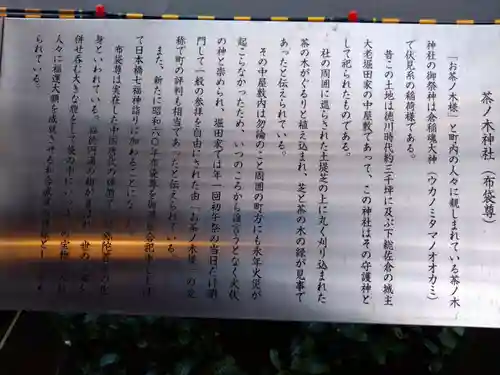 茶ノ木神社（布袋尊）
「お茶ノ木様」と町内の人々に親しまれている茶ノ木
神社の御祭神は倉稲魂大神（ウカノミタマノオオカミ）
で伏見系の稲荷様である。
昔この土地は徳川時代約三千坪に及ぶ下総佐倉の城主
大老堀田家の中屋敷であって、この神社はその守護神と
して祀られたものである。
社の周囲に巡らされた土堤芝の上に丸く刈り込まれた
茶の木がぐるりと植え込まれ、芝と茶の木の緑が見事で
あったと伝えられている。
その中屋敷内は勿論のこと周囲の町方にも永年火災が
起こらなかったため、いつのころからか誰言うとなく火伏
の神と崇められ、堀田家では年一回初午祭の当日だけ開
門して一般の参拝を自由にされた由「お茶ノ木様」の愛
称で町の評判も相当であったと伝えられている。
また、新たに昭和六〇年布袋尊を御遷座合祀申し上げ
て日本橋七福神詣りに加わることになった。
布袋尊は実在した中国唐代の
身といわれている。 世の
併せ呑む大きな腹
人々に福運大願を成就させる和合
られている。